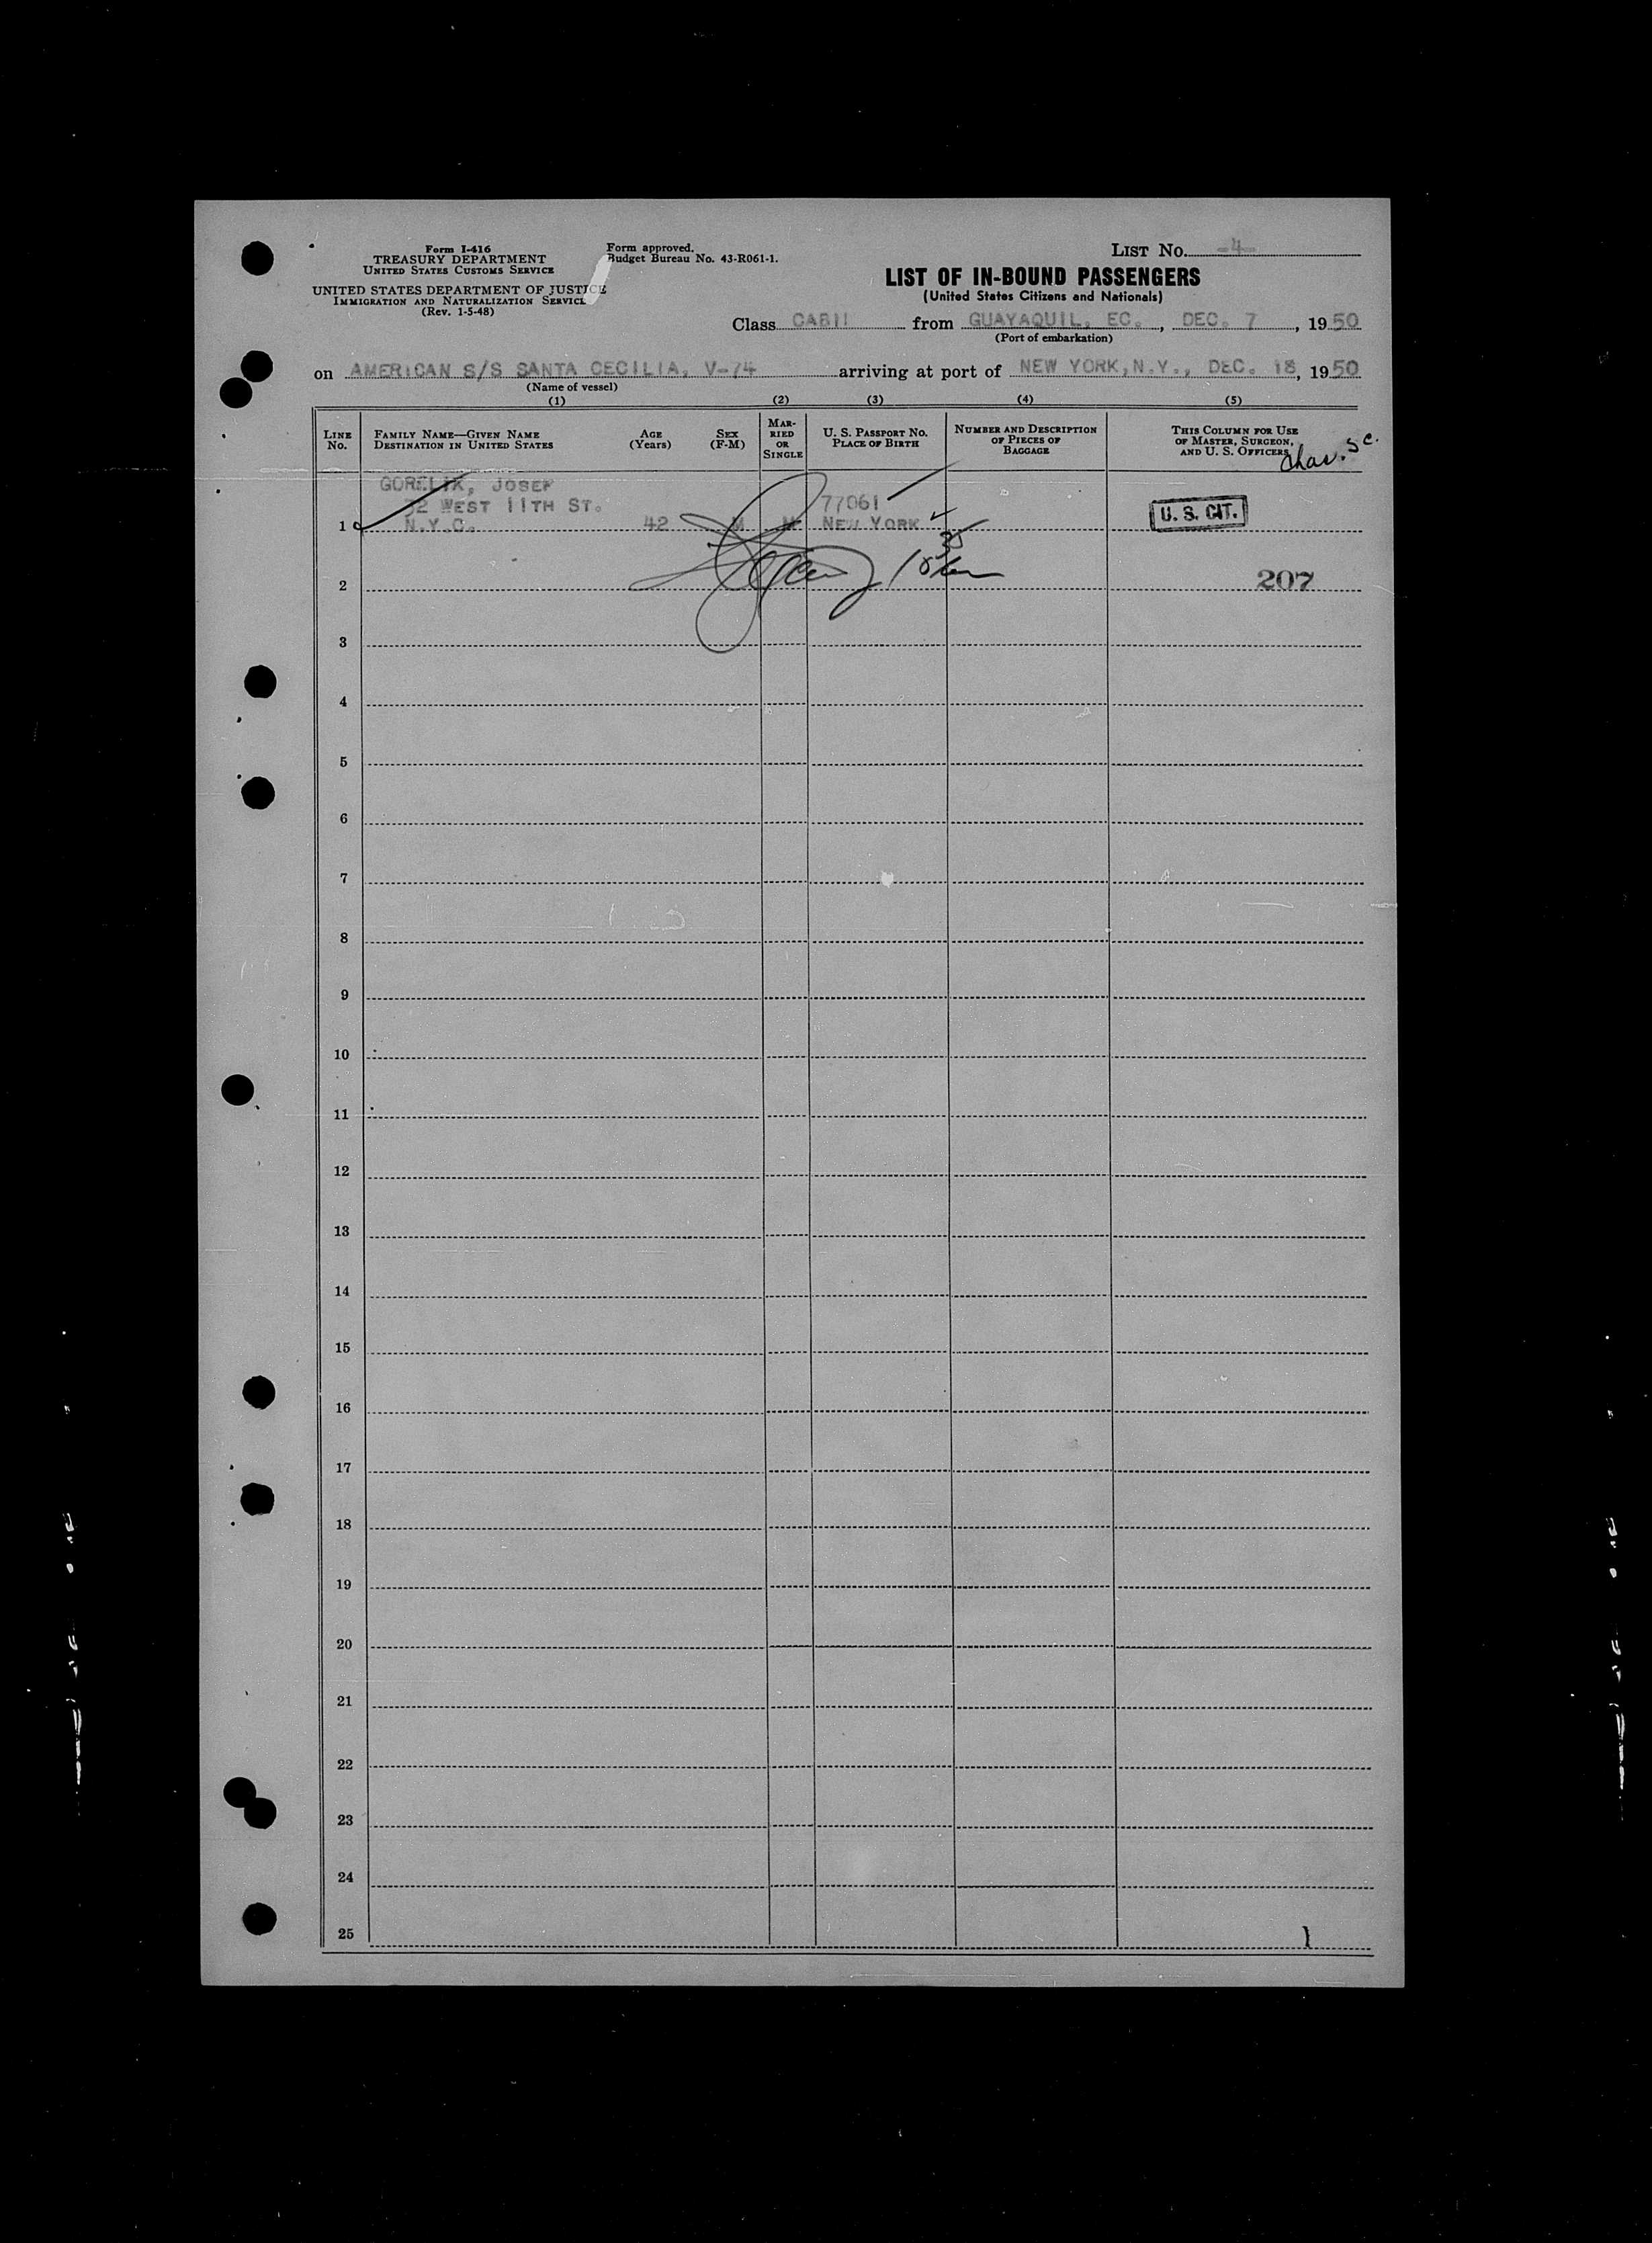 Form I-416
TREASURY DEPARTMENT
UNITED STATES CUSTOMS SERVICE
UNITED STATES DEPARTMENT OF JUSTICE
IMMIGRATION AND NATURALIZATION SERVICE
(Rev. 1-5-48)
Form approved.
Budget Bureau No. 43-R061-1.
LIST NO. -4-
LIST OF IN-BOUND PASSENGERS
(United States Citizens and Nationals)
Class CABIN from GUAYAQUIL, EC., DEC. 7, 1950
(Port of embarkation)
on AMERICAN S/S SANTA CECILIA, V-74 arriving at port of NEW YORK, N.Y., DEC. 18, 1950
(Name of vessel)
(1) (2) (3) (4) (5)
LINE NO.
FAMILY NAME—GIVEN NAME
DESTINATION IN UNITED STATES
AGE (Years)
SEX (F-M)
MARRIED OR SINGLE
U. S. PASSPORT NO.
PLACE OF BIRTH
NUMBER AND DESCRIPTION OF PIECES OF BAGGAGE
THIS COLUMN FOR USE OF MASTER, SURGEON, AND U. S. OFFICERS
GORELIK, JOSEF
32 WEST 11TH ST. 77061
1 N.Y.C. 42 M M NEW YORK U. S. CIT.
2 207
3
4
5
6
7
8
9
10
11
12
13
14
15
16
17
18
19
20
21
22
23
24
25 1